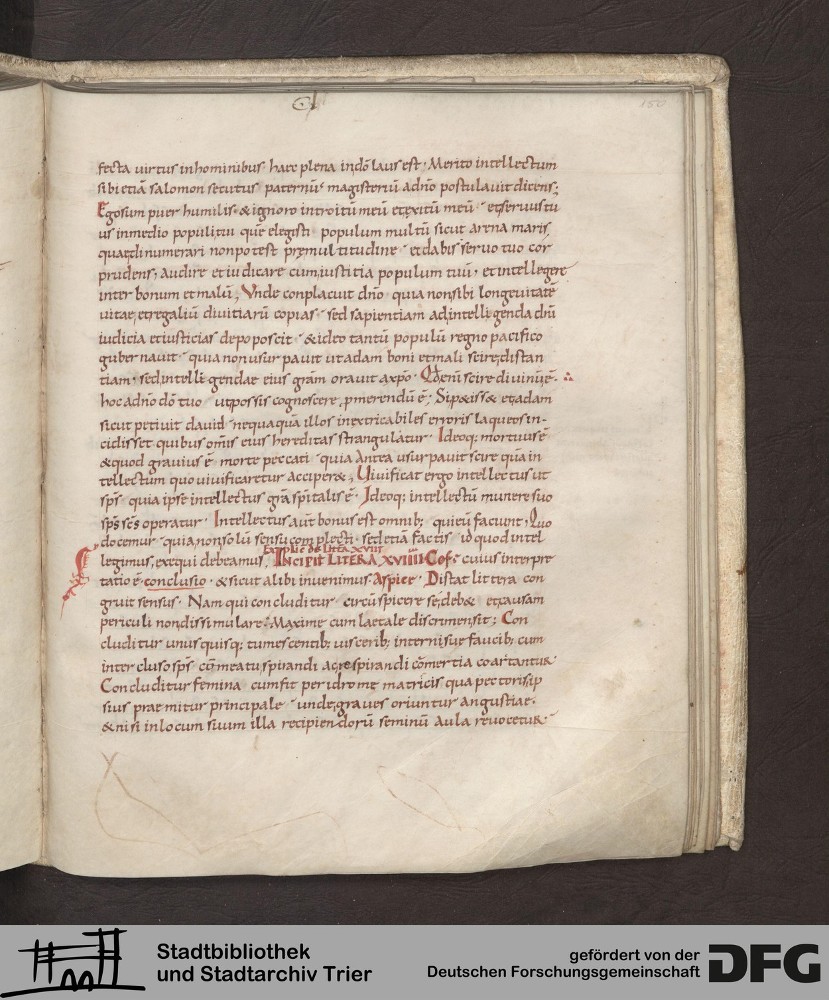 150
fecta uirtus inhominibus· haec plena indō laus est· Merito intellectum
sibi etiā salomon secutus paternū magisteriū adn̄o postulauit dicens;
Egosum puer humilis· & ignoro introitū meū et exitū meū· et seruus tu
us inmedio populi tui quē elegisti populum multū sicut arena maris
quae dinumerari nonpotest prae multitudine· et dabis seruo tuo cor
prudens; audire et iudicare cum iustitia populum tuū· et intellegere
inter bonum et malū; Unde conplacuit dn̄o quia nonsibi longeuitatē
uitae, et regaliū diuitiarū copias· sed sapientiam ad intelligenda dn̄i
iudicia et iusticias depoposcit· & ideo tantū populū regno pacifico
gubernauit· quia non usurpauit ut adam boni et mali scire distan
tiam· sed intelligendae eius grām orauit axpō·
hoc adn̄o dō tuo ut possis cognoscere p̱merendū ē;
sicut petiuit dauid· nequaquā illos inextricabiles erroris laqueos in-
cidisset quibus om̄is eius hereditas strangulatur· Ideoq; mortuus ē
& quod grauius ē morte peccati· quia antea usurpauit scire quā in
tellectum quo uiuificaretur accipere; Uiuificat ergo intellectus ut
sp̄s· quia ipse intellectus grā sp̄italis ē· Ideoq; intellectū munere suo
sp̄s sc̄s operatur· Intellectus aut̄ bonus est omnib; qui eū faciunt; Quo
docemur quia non solū sensu complecti· sed etiā factis id quod intel
legimus, exequi debeamus; Explic de Litēa xviii INCIPIT LITERA XVIIII Cof· cuius interpre
tatio ē conclusio· & sicut alibi inuenimus Aspice· Distat littera con
gruit sensus· Nam qui concluditur circūspicere se debe& et causam
periculi non dissimulare· Maxime cum laetale discrimen sit; Con
cluditur unusquisq; tumescentib; uiscerib; internisue faucib; cum
intercluso sp̄s cū meatu spirandi ac respirandi cōmertia coartantur·
Concluditur femina cum fit per idrome matricis qua pectoris ip
sius praemitur principale· unde graues oriuntur angustiae·
& nisi inlocum suum illa recipiendorū seminū aula reuocetur·
Stadtbibliothek
und Stadtarchiv Trier
gefördert von der
Deutschen Forschungsgemeinschaft
DFG